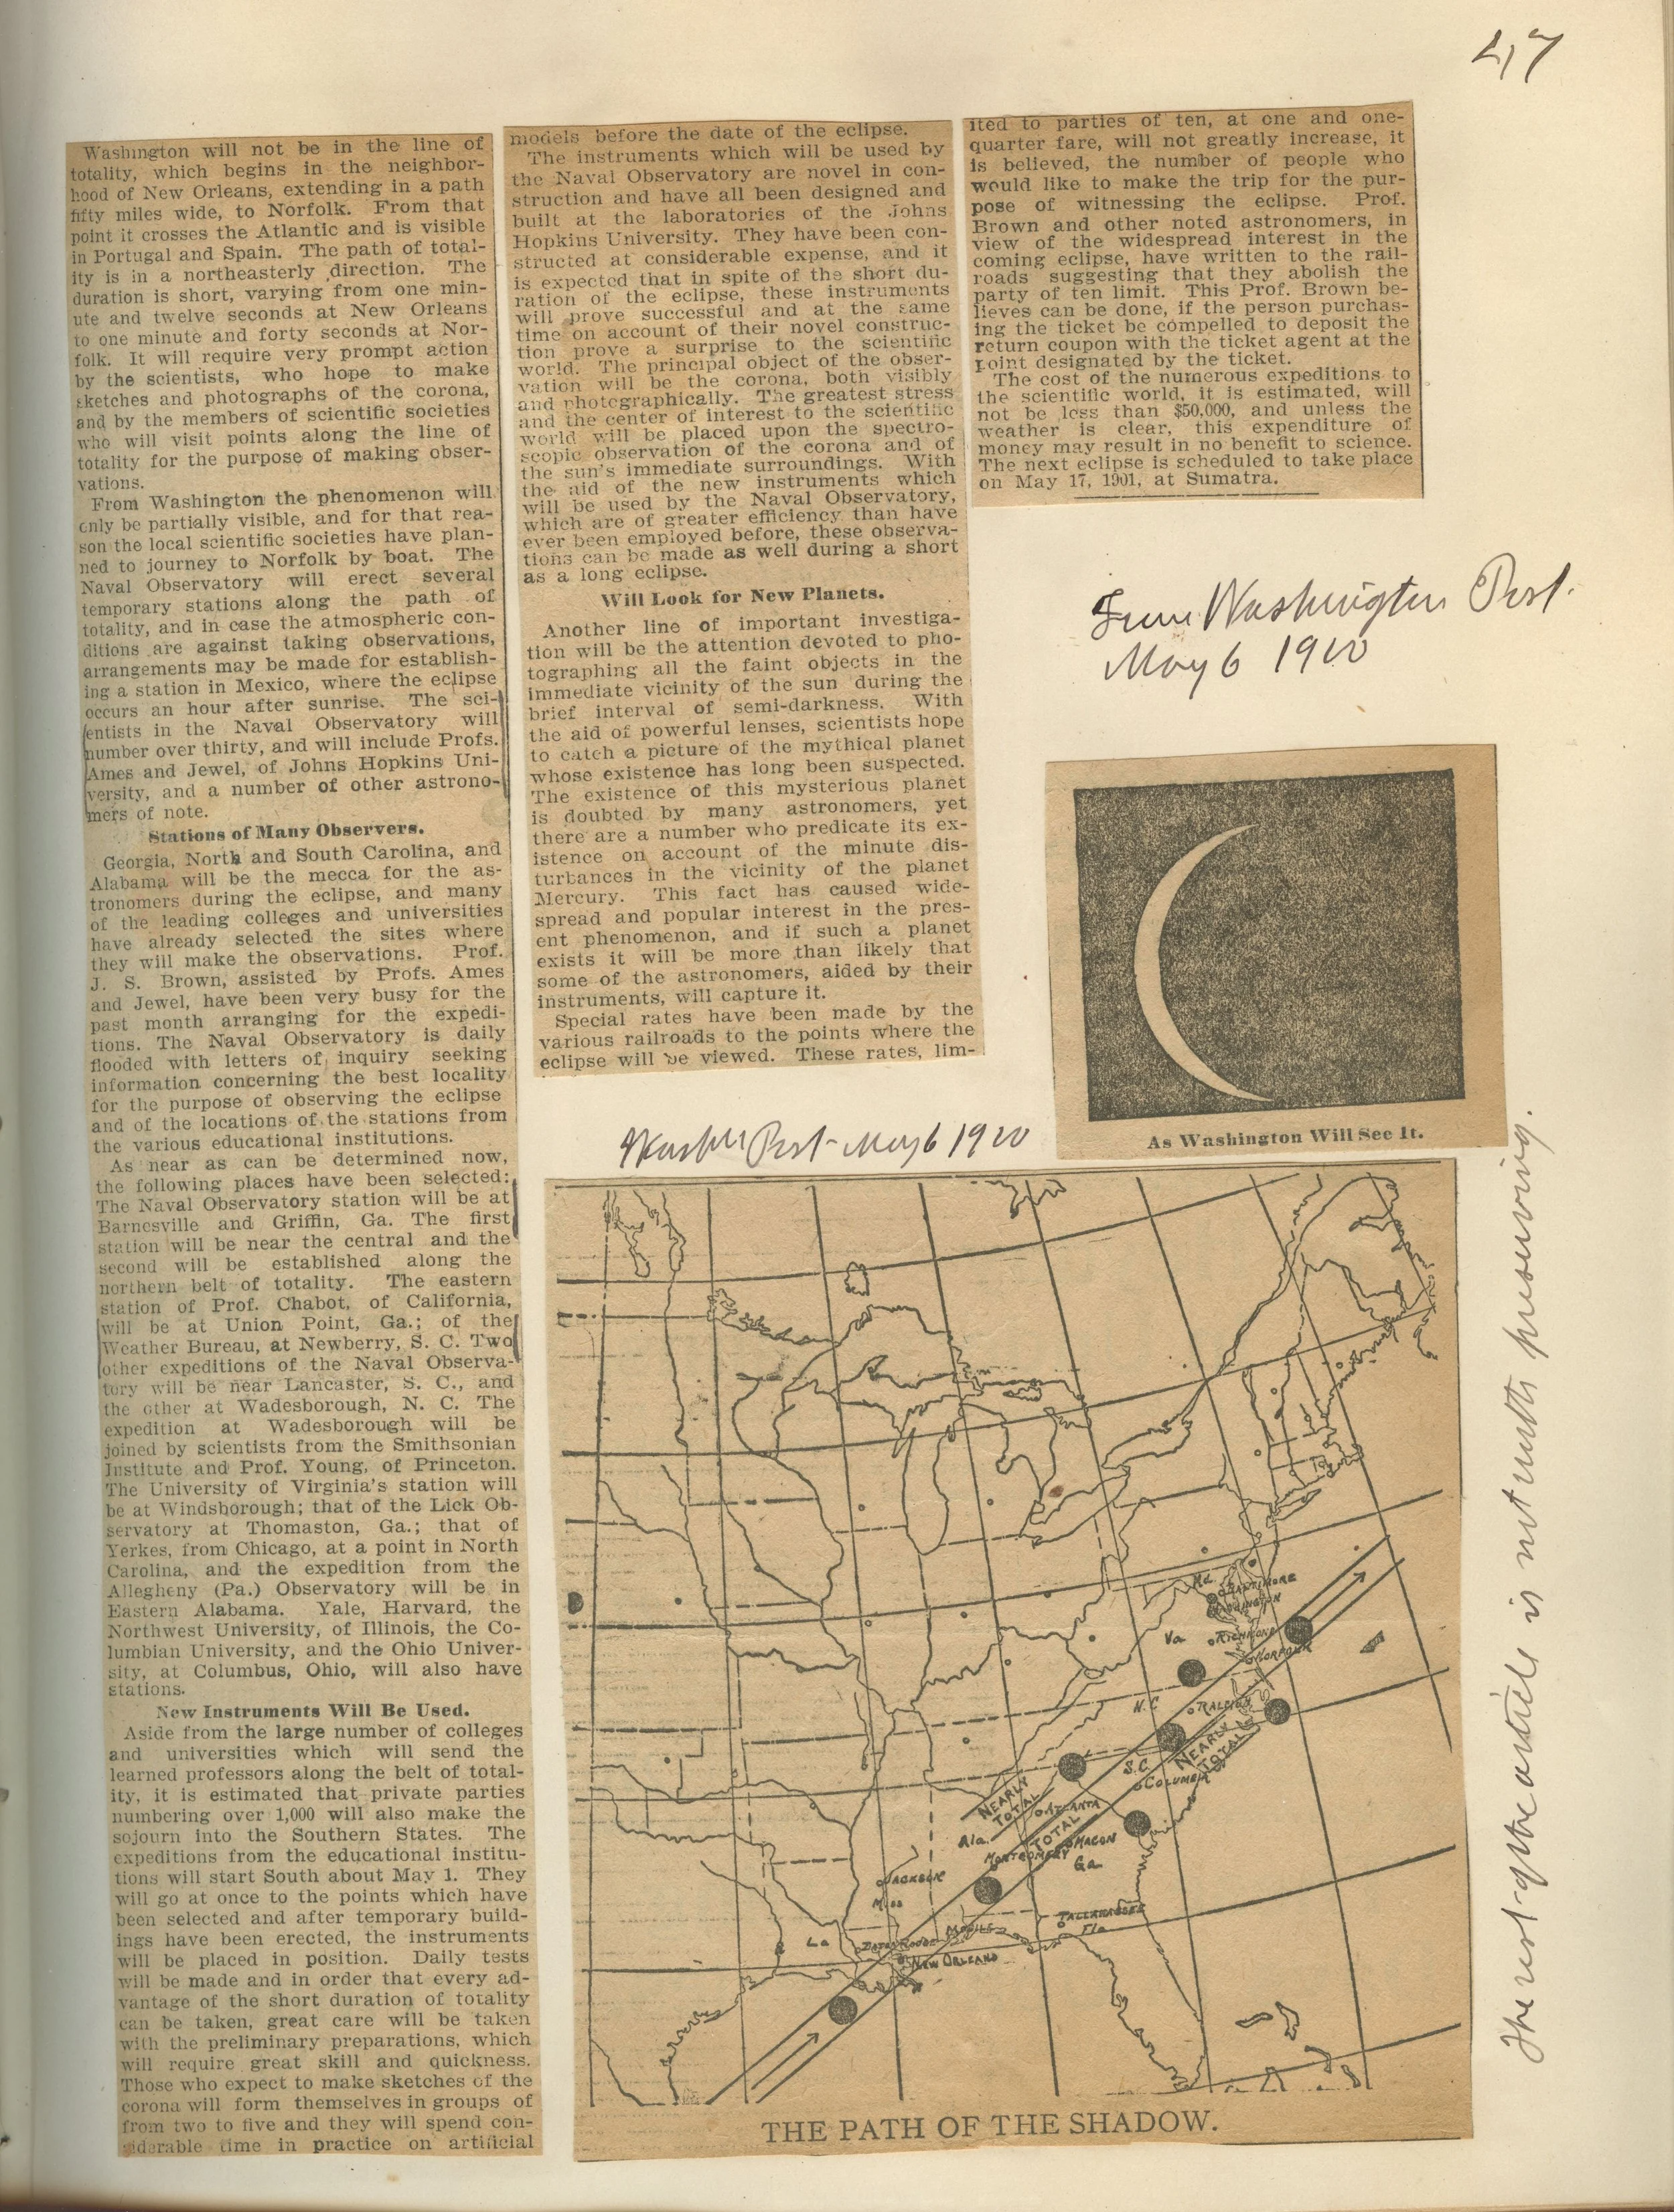 47
Washington will not be in the line of
totality, which begins in the neighbor-
hood of New Orleans, extending in a path
fifty miles wide, to Norfolk. From that
point it crosses the Atlantic and is visible
in Portugal and Spain. The path of total-
ity is in a northeasterly direction. The
duration is short, varying from one min-
ute and twelve seconds at New Orleans
to one minute and forty seconds at Nor-
folk. It will require very prompt action
by the scientists, who hope to make
sketches and photographs of the corona,
and by the members of scientific societies
who will visit points along the line of
totality for the purpose of making obser-
vations.
From Washington the phenomenon will
only be partially visible, and for that rea-
son the local scientific societies have plan-
ned to journey to Norfolk by boat. The
Naval Observatory will erect several
temporary stations along the path of
totality, and in case the atmospheric con-
ditions are against taking observations,
arrangements may be made for establish-
ing a station in Mexico, where the eclipse
occurs an hour after sunrise. The sci-
entists in the Naval Observatory will
number over thirty, and will include Profs.
Ames and Jewel, of Johns Hopkins Uni-
versity, and a number of other astrono-
mers of note.
Stations of Many Observers.
Georgia, North and South Carolina, and
Alabama will be the mecca for the as-
tronomers during the eclipse, and many
of the leading colleges and universities
have already selected the sites where
they will make the observations. Prof.
J. S. Brown, assisted by Profs. Ames
and Jewel, have been very busy for the
past month arranging for the expedi-
tions. The Naval Observatory is daily
flooded with letters of inquiry seeking
information concerning the best locality
for the purpose of observing the eclipse
and of the locations of the stations from
the various educational institutions.
As near as can be determined now,
the following places have been selected:
The Naval Observatory station will be at
Barnesville and Griffin, Ga. The first
station will be near the central and the
second will be established along the
northern belt of totality. The eastern
station of Prof. Chabot, of California,
will be at Union Point, Ga.; of the
Weather Bureau, at Newberry, S. C. Two
other expeditions of the Naval Observa-
tory will be near Lancaster, S. C., and
the other at Wadesborough, N. C. The
expedition at Wadesborough will be
joined by scientists from the Smithsonian
Institute and Prof. Young, of Princeton.
The University of Virginia's station will
be at Windsborough; that of the Lick Ob-
servatory at Thomaston, Ga.; that of
Yerkes, from Chicago, at a point in North
Carolina, and the expedition from the
Allegheny (Pa.) Observatory will be in
Eastern Alabama. Yale, Harvard, the
Northwest University, of Illinois, the Co-
lumbian University, and the Ohio Univer-
sity, at Columbus, Ohio, will also have
stations.
New Instruments Will Be Used.
Aside from the large number of colleges
and universities which will send the
learned professors along the belt of total-
ity, it is estimated that private parties
numbering over 1,000 will also make the
sojourn into the Southern States. The
expeditions from the educational institu-
tions will start South about May 1. They
will go at once to the points which have
been selected and after temporary build-
ings have been erected, the instruments
will be placed in position. Daily tests
will be made and in order that every ad-
vantage of the short duration of totality
can be taken, great care will be taken
with the preliminary preparations, which
will require great skill and quickness.
Those who expect to make sketches of the
corona will form themselves in groups of
from two to five and they will spend con-
siderable time in practice on artificial
models before the date of the eclipse.
The instruments which will be used by
the Naval Observatory are novel in con-
struction and have all been designed and
built at the laboratories of the Johns
Hopkins University. They have been con-
structed at considerable expense, and it
is expected that in spite of the short du-
ration of the eclipse, these instruments
will prove successful and at the same
time on account of their novel construc-
tion prove a surprise to the scientific
world. The principal object of the obser-
vation will be the corona, both visibly
and photographically. The greatest stress
and the center of interest to the scientific
world will be placed upon the spectro-
scopic observation of the corona and of
the sun's immediate surroundings. With
the aid of the new instruments which
will be used by the Naval Observatory,
which are of greater efficiency than have
ever been employed before, these observa-
tions can be made as well during a short
as a long eclipse.
Will Look for New Planets.
Another line of important investiga-
tion will be the attention devoted to pho-
tographing all the faint objects in the
immediate vicinity of the sun during the
brief interval of semi-darkness. With
the aid of powerful lenses, scientists hope
to catch a picture of the mythical planet
whose existence has long been suspected.
The existence of this mysterious planet
is doubted by many astronomers, yet
there are a number who predicate its ex-
istence on account of the minute dis-
turbances in the vicinity of the planet
Mercury. This fact has caused wide-
spread and popular interest in the pres-
ent phenomenon, and if such a planet
exists it will be more than likely that
some of the astronomers, aided by their
instruments, will capture it.
Special rates have been made by the
various railroads to the points where the
eclipse will be viewed. These rates, lim-
ited to parties of ten, at one and one-
quarter fare, will not greatly increase, it
is believed, the number of people who
would like to make the trip for the pur-
pose of witnessing the eclipse. Prof.
Brown and other noted astronomers, in
view of the widespread interest in the
coming eclipse, have written to the rail-
roads suggesting that they abolish the
party of ten limit. This Prof. Brown be-
lieves can be done, if the person purchas-
ing the ticket be compelled to deposit the
return coupon with the ticket agent at the
point designated by the ticket.
The cost of the numerous expeditions to
the scientific world, it is estimated, will
not be less than $50,000, and unless the
weather is clear, this expenditure of
money may result in no benefit to science.
The next eclipse is scheduled to take place
on May 17, 1901, at Sumatra.
From Washington Post.
May 6 1900
As Washington Will See It.
Post May 6 1900
Md.
BALTIMORE
WASHINGTON
Va
RICHMOND
NORFOLK
N.C.
RALEIGH
NEARLY
TOTAL
S.C.
COLUMBIA
NEARLY
TOTAL
ATLANTA
TOTAL
Ala.
MACON
MONTGOMERY
Ga
JACKSON
Miss
TALLAHASSEE
Fla
MOBILE
La
BATON ROUGE
NEW ORLEANS
THE PATH OF THE SHADOW.
The rest of the article is not worth preserving.